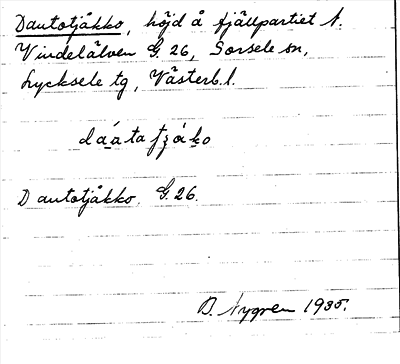 Dautotjåkko, höjd å fjällpartiet t.
Vindelälven G. 26, Sorsele sn,
Lycksele tg, Västerb. l.
Dautotjåkko. G. 26.
D. Nygren 1935.